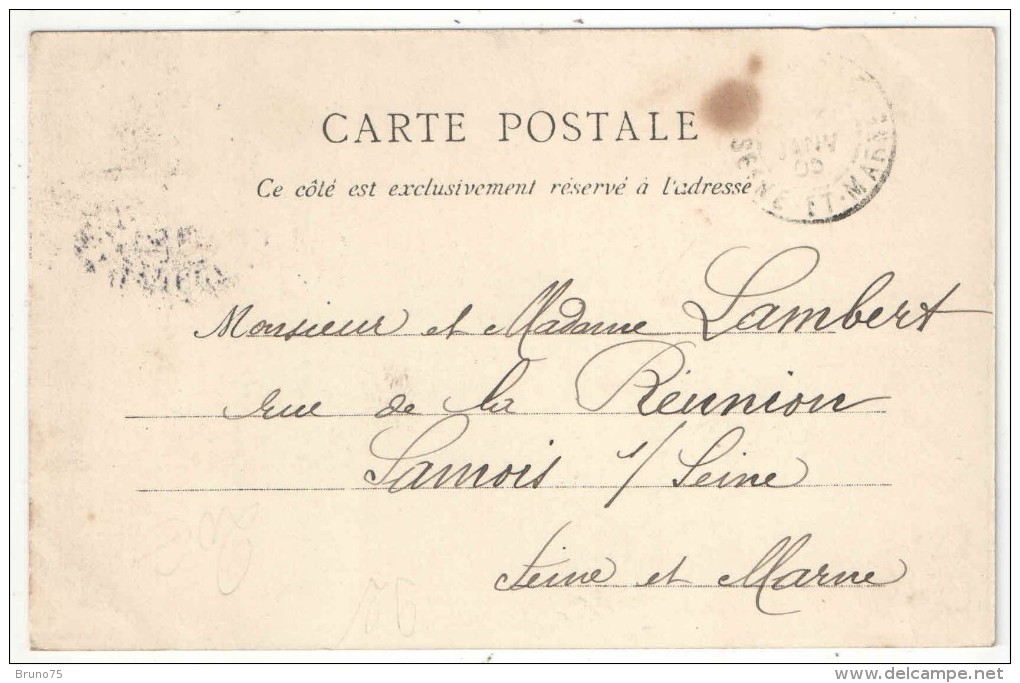 CARTE POSTALE
Ce côté est exclusivement réservé à l'adresse
JANV
SEINE-ET-MARNE
Monsieur et Madame Lambert
rue de la Réunion
Samois s/ Seine
Seine et Marne
Bruno75
www.delcampe.net